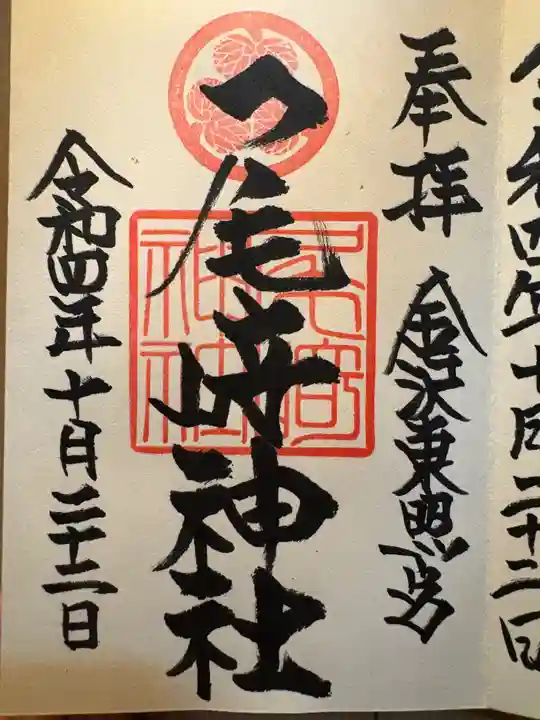 令和四年十月二十二日
奉拝
金沢東照宮
尾崎神社
令和四年十月二十二日